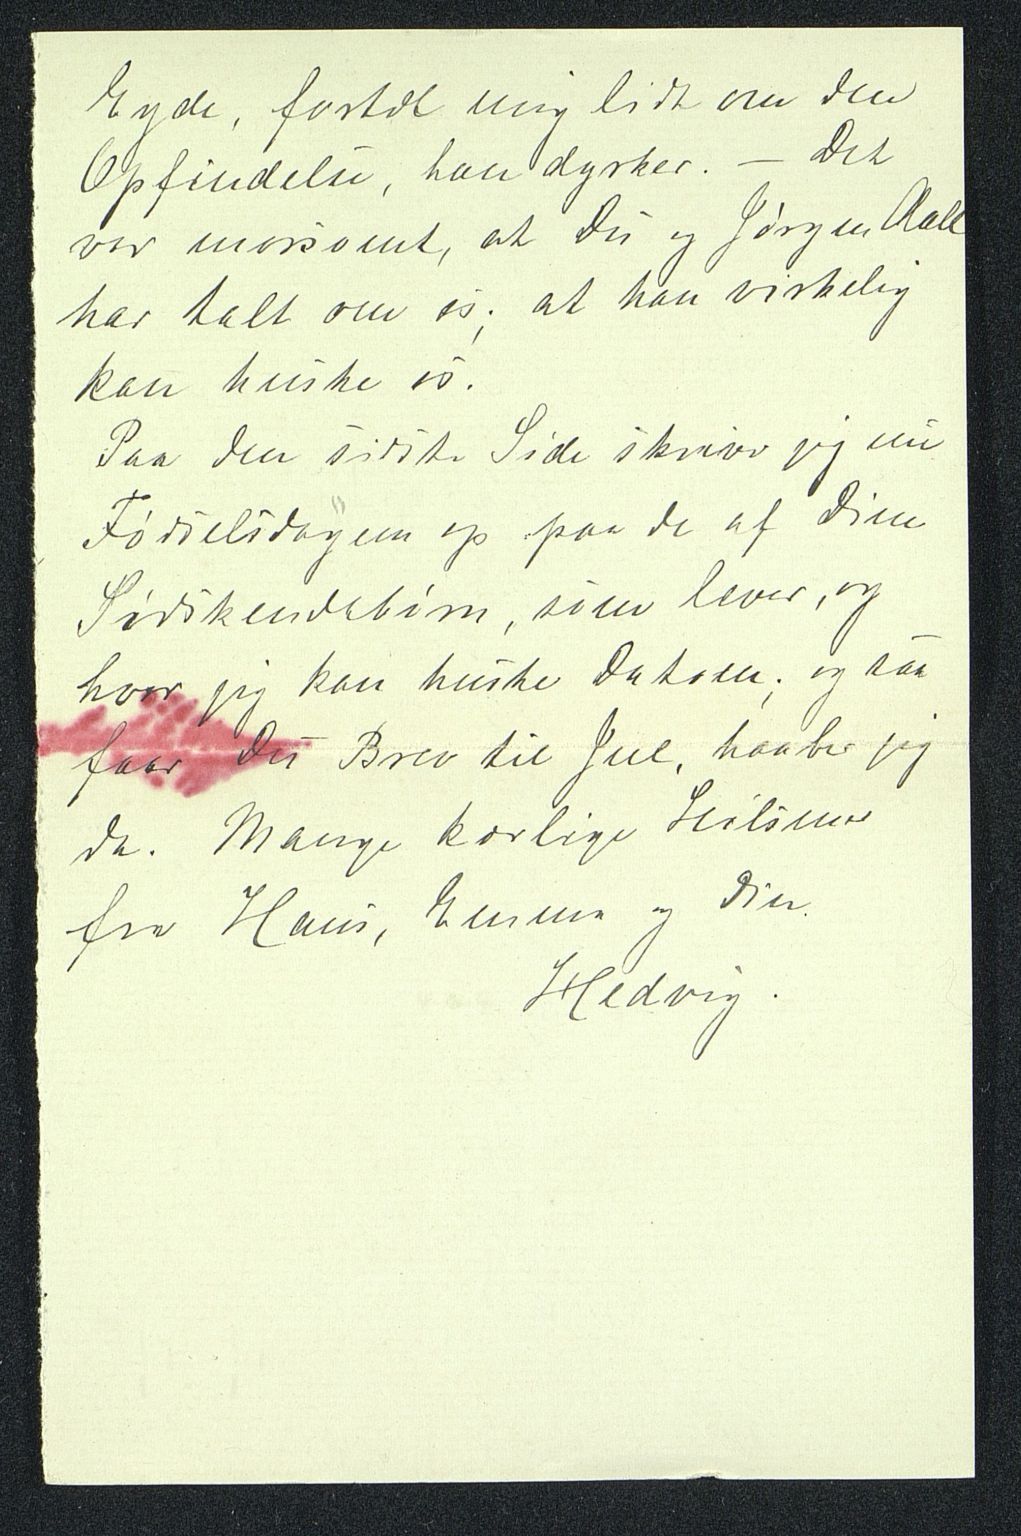 Eyde, fortæl mig lidt om den
Opfindelse, han dyrker. — Det
var morsomt, at Du og Jørgen Aall
har talt om os; at han virkelig
kan huske os.
Paa den sidste Side skriver jeg nu
Fødselsdagene op paa de af Dine
Sødskendebørn, som lever, og
hvor jeg kan huske Datoen; og saa
faar Du Brev til Jul, haaber jeg
da. Mange kærlige Hilsener
fra Hans, Emma og Din
Hedvig.